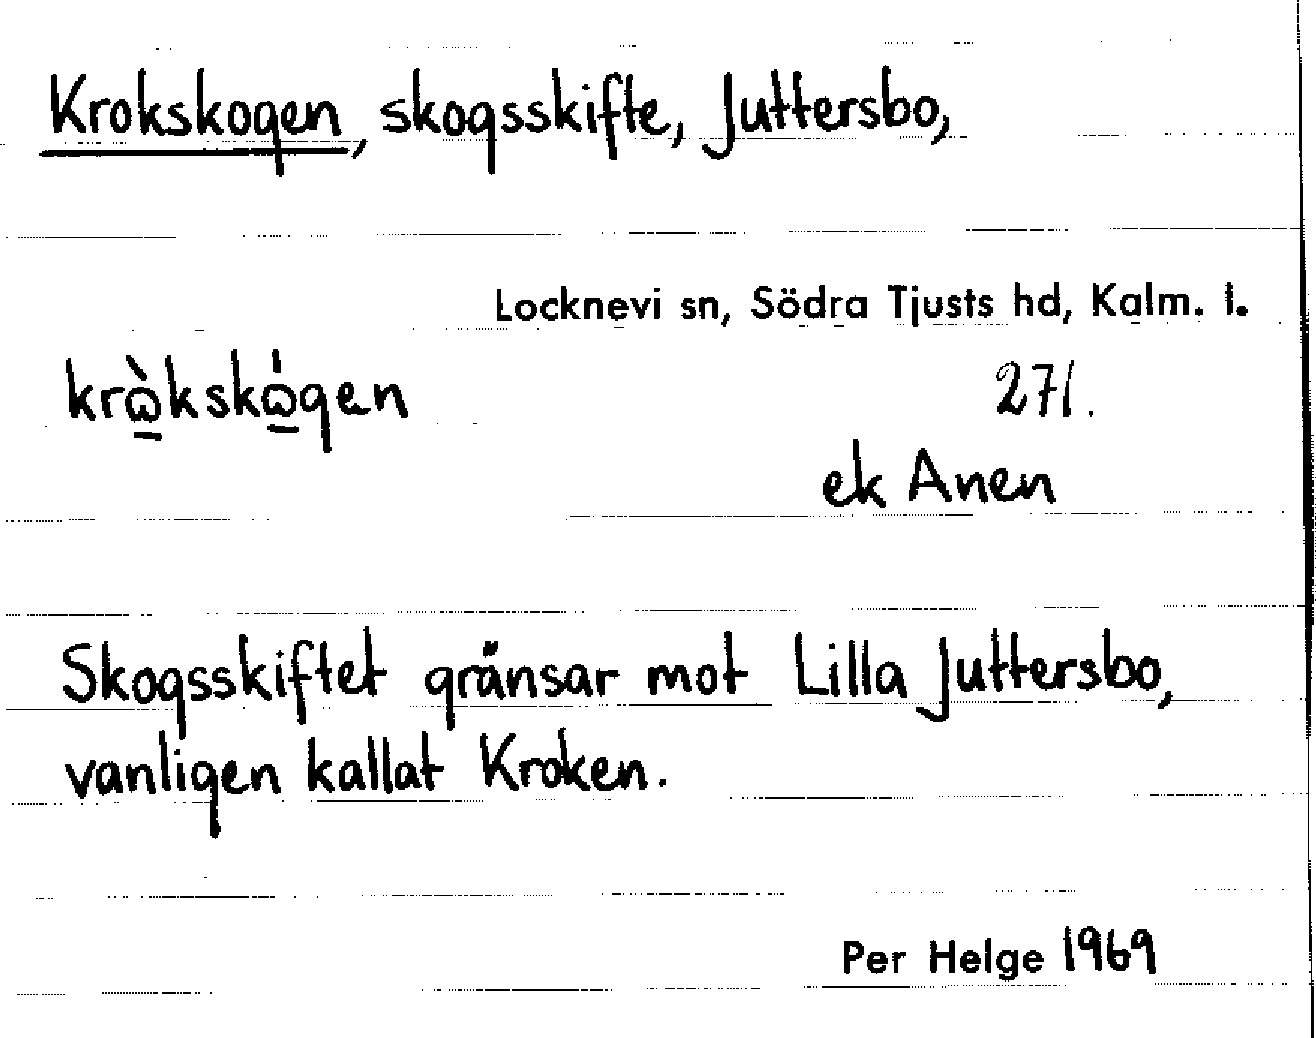 Krokskogen, skogsskifte, Juttersbo,
Locknevi sn, Södra Tjusts hd, Kalm. l.
krɷ̱̀kskɷ̱́gen
271.
ek Anen
Skogsskiftet gränsar mot Lilla Juttersbo,
vanligen kallat Kroken.
Per Helge 1969